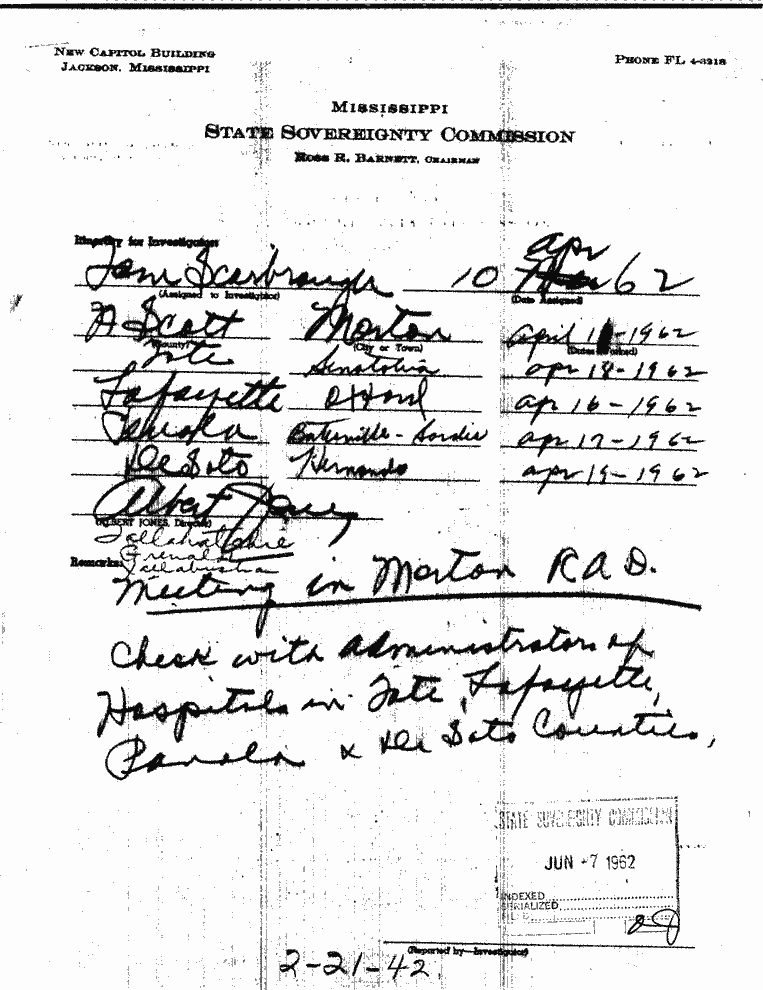 NEW CAPITOL BUILDING
JACKSON, MISSISSIPPI
PHONE FL 4-3218
MISSISSIPPI
STATE SOVEREIGNTY COMMISSION
ROSS R. BARNETT, CHAIRMAN
Itinerary for Investigator:
Tom Scarbrough 10 apr 62
(Assigned to Investigator) (Date Assigned)
Scott Morton april 1 -1962
(County) (City or Town) (Dates Worked)
Tate Senatobia apr 18-1962
Lafayette Oxford apr 16-1962
Panola Batesville-Sardis apr 17-1962
De Soto Hernando apr 19-1962
Albert Jones
(ALBERT JONES, Director)
Tallahatchie
Grenada
Yallabusha
Remarks:
Meeting in Morton R A D.
Check with administrators of
Hospitals in Tate, Lafayette,
Panola & De Soto Counties,
STATE SOVEREIGNTY COMMISSION
JUN 7 1962
INDEXED
SERIALIZED
FILED
(Reported by—Investigator)
2-21-42